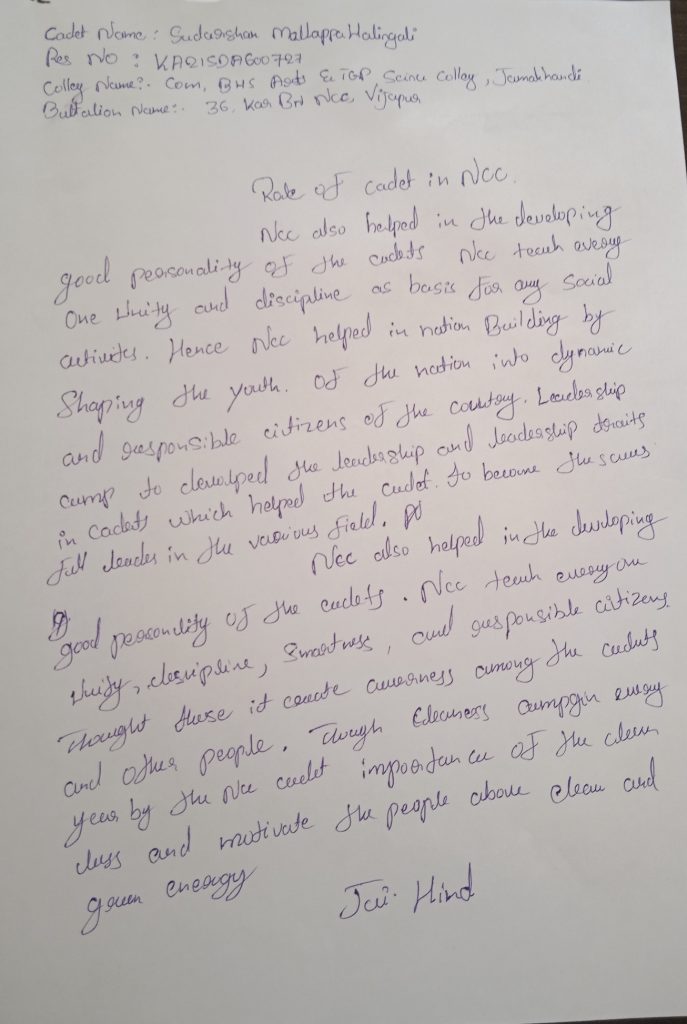 Cadet Name : Sudarshan Mallappa Halingali
Res No : KA21SDA600727
Colley Name:- Com, BHS Arts & TGP Scinu Colley, Jamakhandi
Buttalion Name:- 36, Kar Bn Ncc, Vijapur
Role of cadet in Ncc.
Ncc also helped in the developing
good personality of the cadets Ncc teach every
One Unity and discipline as basis for any Social
activites. Hence Ncc helped in nation Building by
Shaping the youth. Of the nation into dynamic
and responsible citizens of the country. Leadership
camp to devolped the leadership and leadership traits
in Cadets which helped the cadet. to become the succes
full leader in the various field.
Ncc also helped in the developing
good personality of the cadets. Ncc teach everyone
Unity, descripline, Smartness, and responsible citizens.
Thought these it create awerness among the cadets
and other people. Though Cleaness campgin every
year by the Ncc cadet importance of the clean
cless and motivate the people above clean and
green energy
Jai. Hind